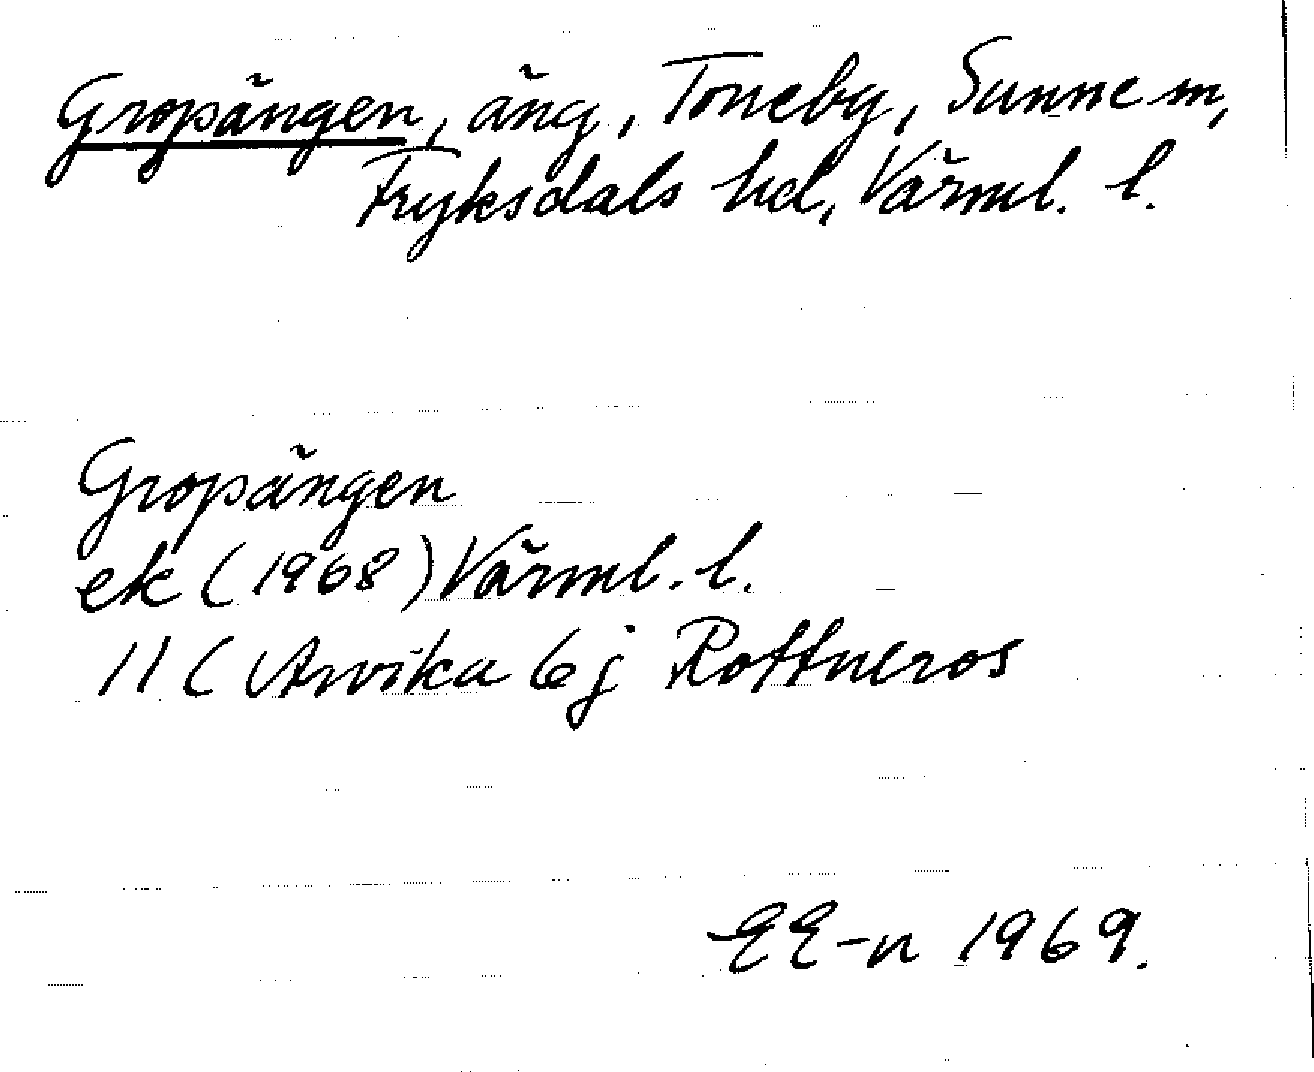 Gropängen, äng, Toneby, Sunne sn,
Fryksdals hd, Värml. l.
Gropängen
ek (1968) Värml. l.
11 C Arvika 6j Rottneros
EE-n 1969.